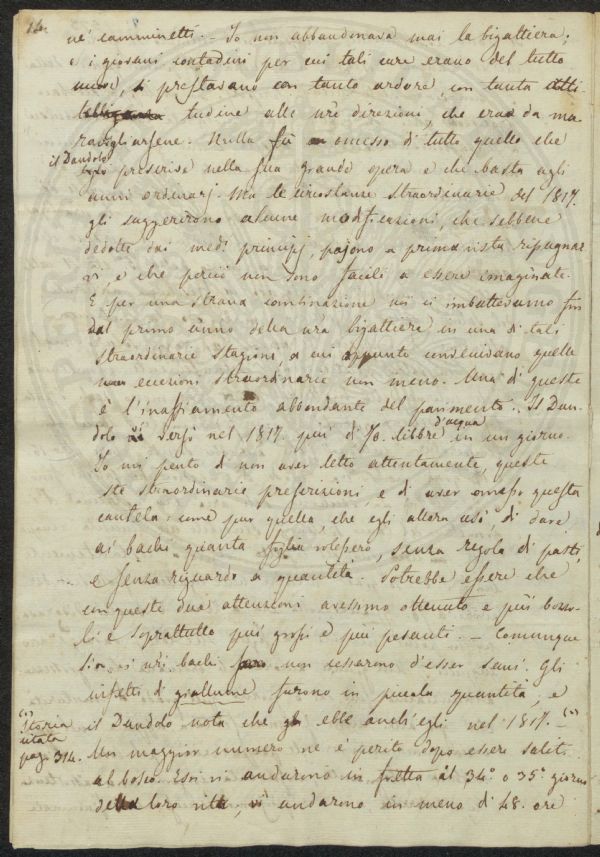 16.
nè camminetti. – Io non abbandonava mai la bigattiera;
e i giovani contadini per cui tali cure erano del tutto
nuove, si prestavano con tanto ardore, con tanta atti
tudine alle nre direzioni, che era da ma
ravigliarsene. Nulla fù omesso di tutto quello che
il Dandolo
prescrive nella sua grande opera e che basta agli
anni ordinarj. Ma le circostanze straordinarie del 1817.
gli suggerirono alcune modificazioni, che sebbene
dedotte dai med.i principj, pajono a prima vista ripugnar
vi, e che perciò non sono facili a essere imaginate.
E per una strana combinazione noi ci imbattevamo fin
dal primo anno della nra bigattiera in una di tali
straordinarie stagioni, a cui appunto convenivano quelle
eccezioni straordinarie non meno. Una di queste
è l'inaffiamento abbondante del pavimento. Il Dan-
dolo vi versò nel 1817. più di 70. libbre d'acqua in un giorno.
Io mi pento di non aver letto attentamente, queste
ste straordinarie prescrizioni, e di aver omesso questa
cautela: come pur quella, che egli allora usò, di dare
ai bachi quanta foglia volessero, senza regola di pasti,
e senza riguardo a quantità. Potrebbe essere che
con queste due attenzioni avessimo ottenuto e più bozzo-
li e soprattutto più grossi e più pesanti. – Comunque
sia, i nri bachi non cessarono d'esser sani. Gli
infetti di giallume furono in piccola quantità, e
il Dandolo nota che gli ebbe anch'egli nel 1817. (1)
(1) Storia
citata
pag. 314.
Un maggior numero ne è perito dopo essere saliti
al bosco. Essi vi andarono in fretta al 34° o 35° giorno
della loro vita, vi andarono in meno di 48. ore